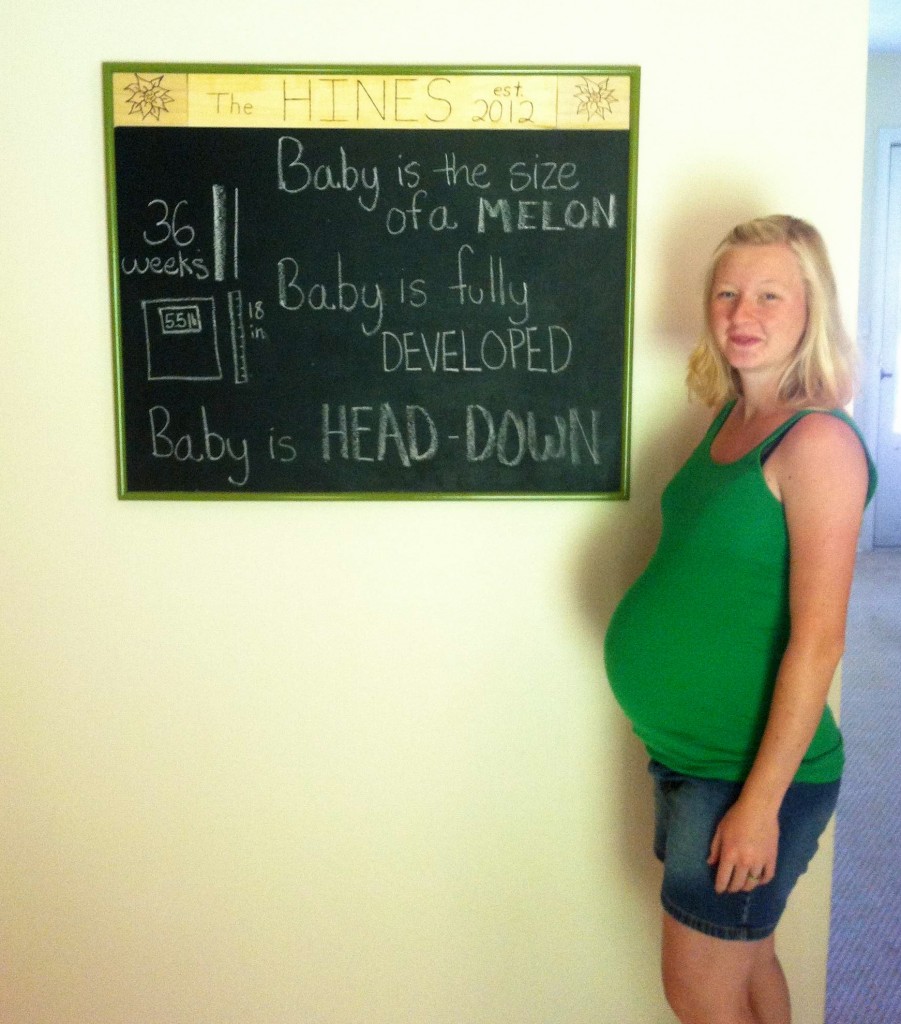 The HINES est. 2012
Baby is the size
of a MELON
36
weeks
Baby is fully
DEVELOPED
5.5lb
18
in.
Baby is HEAD-DOWN